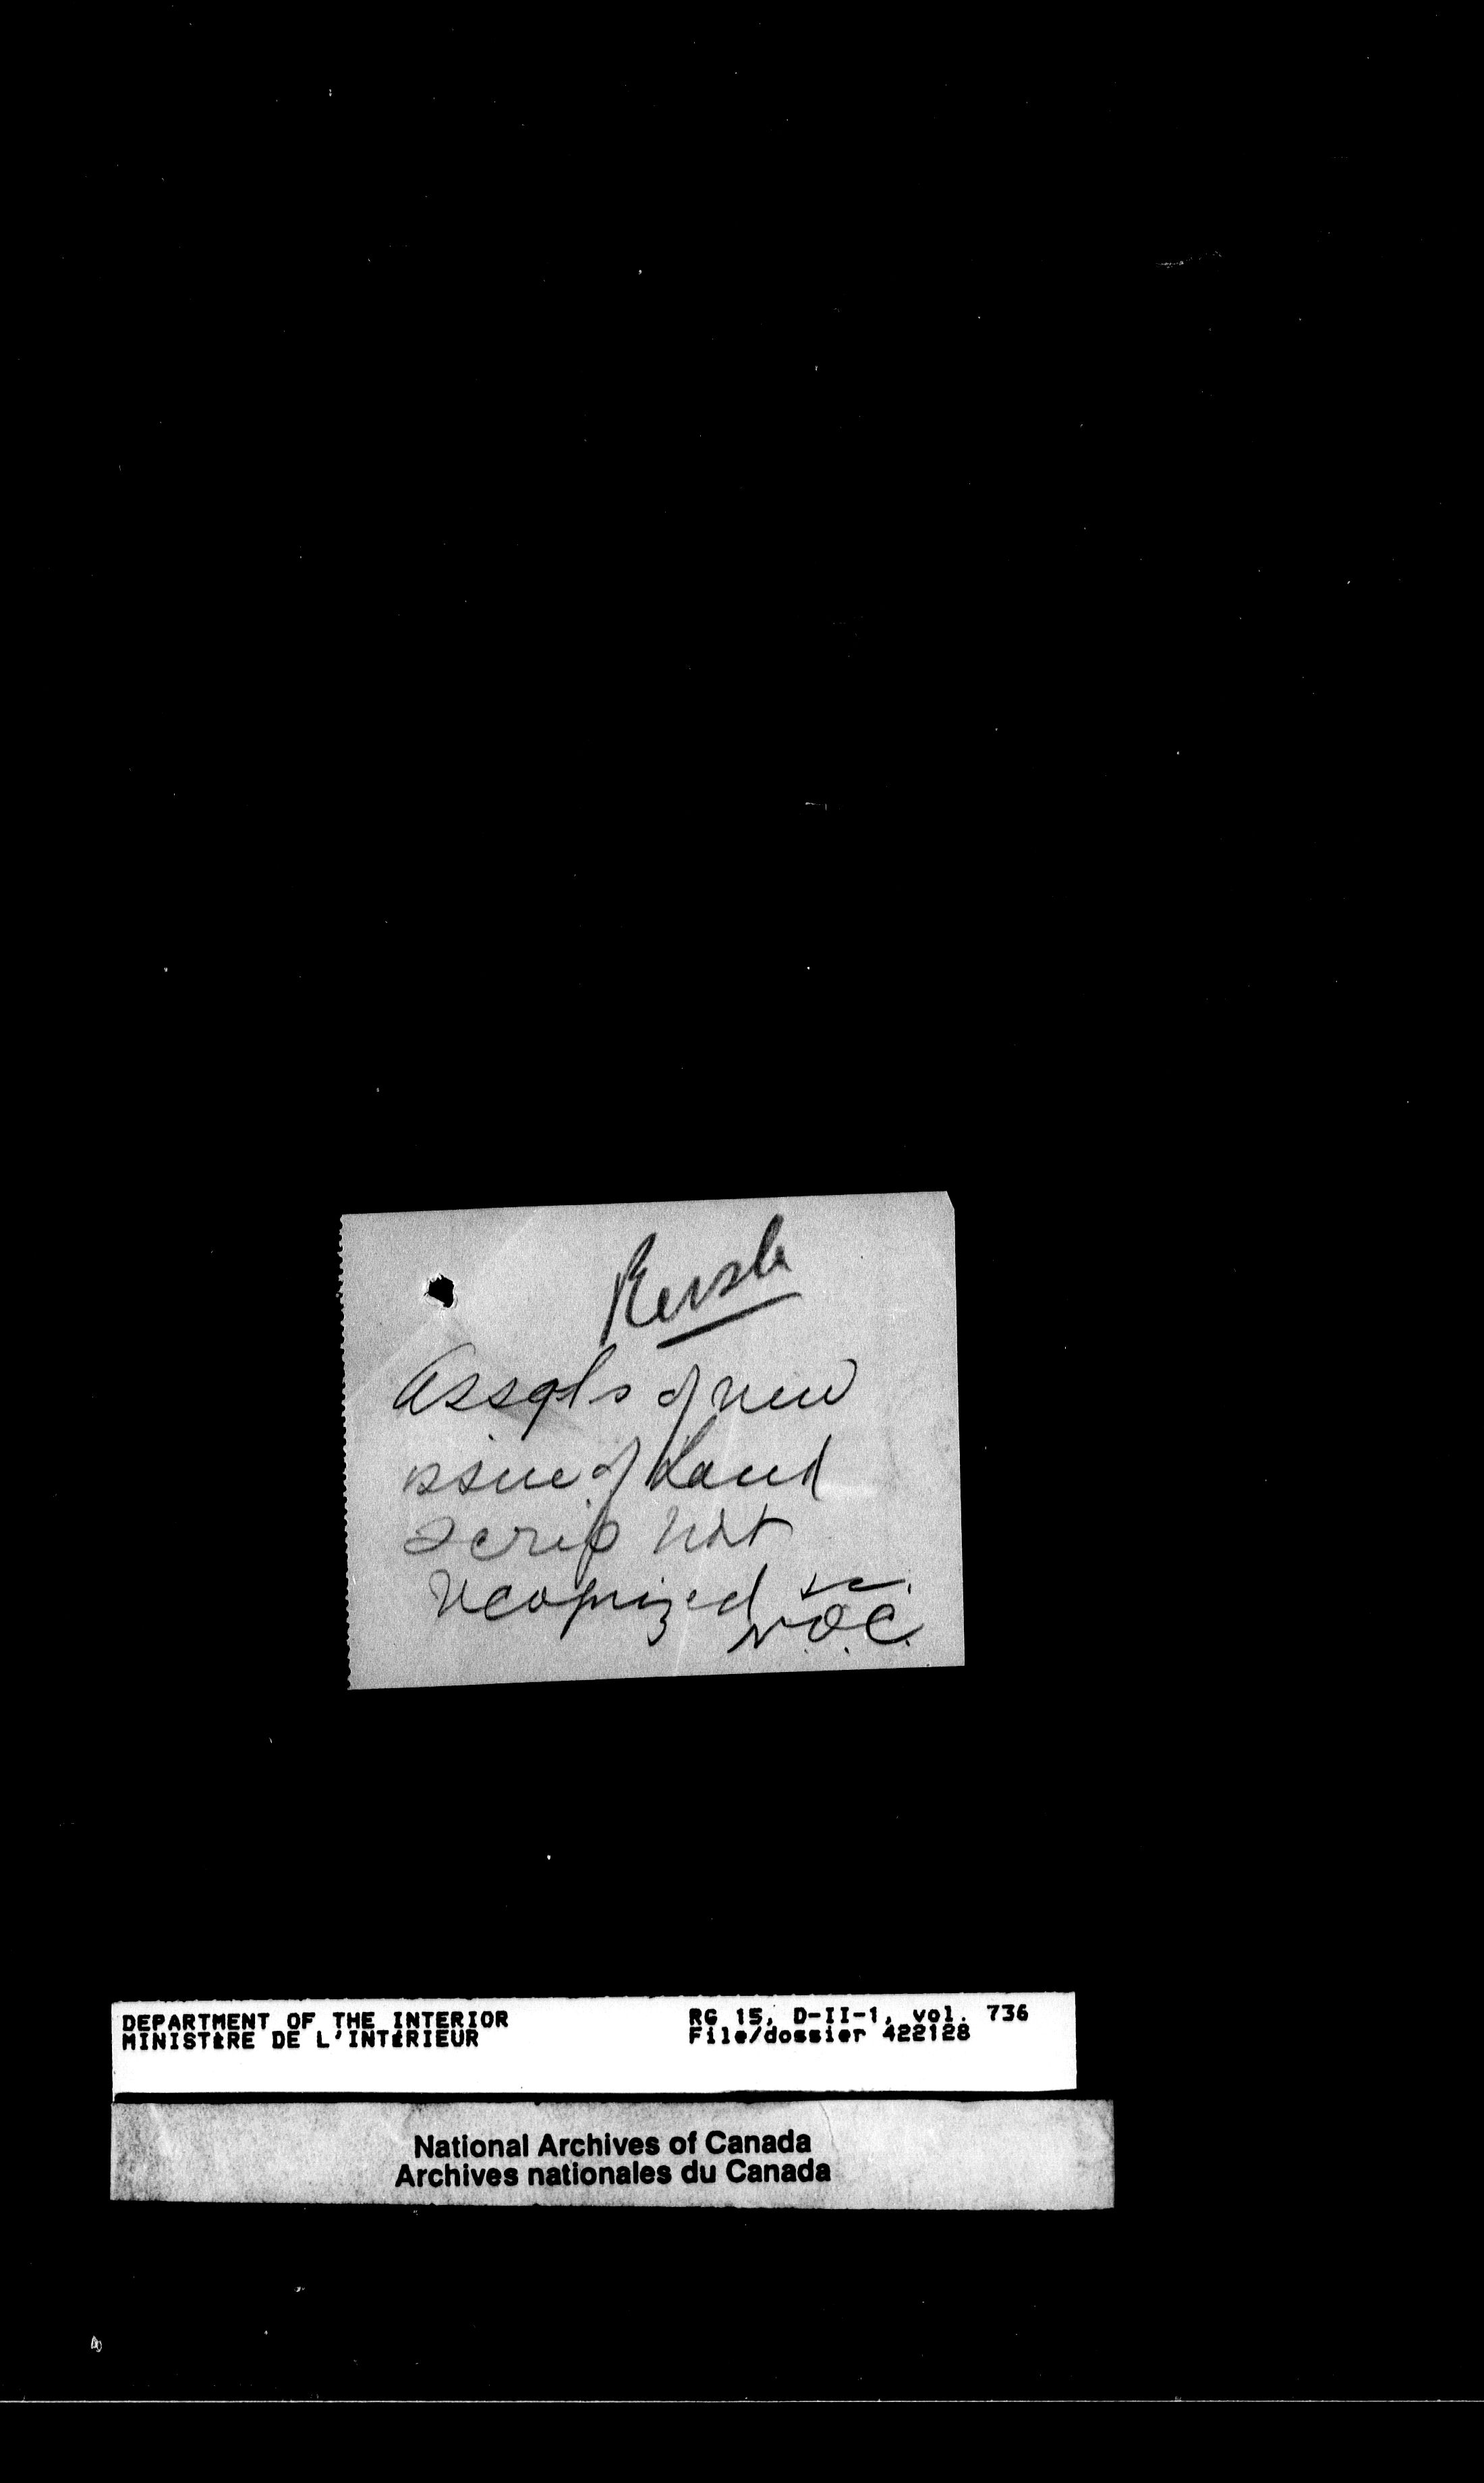 Assgts of new
issue of Land
scrip Not
recognized
N.O.C.
DEPARTMENT OF THE INTERIOR
MINISTÈRE DE L'INTÉRIEUR
RG 15, D-II-1, vol. 736
File/dossier 422128
National Archives of Canada
Archives nationales du Canada